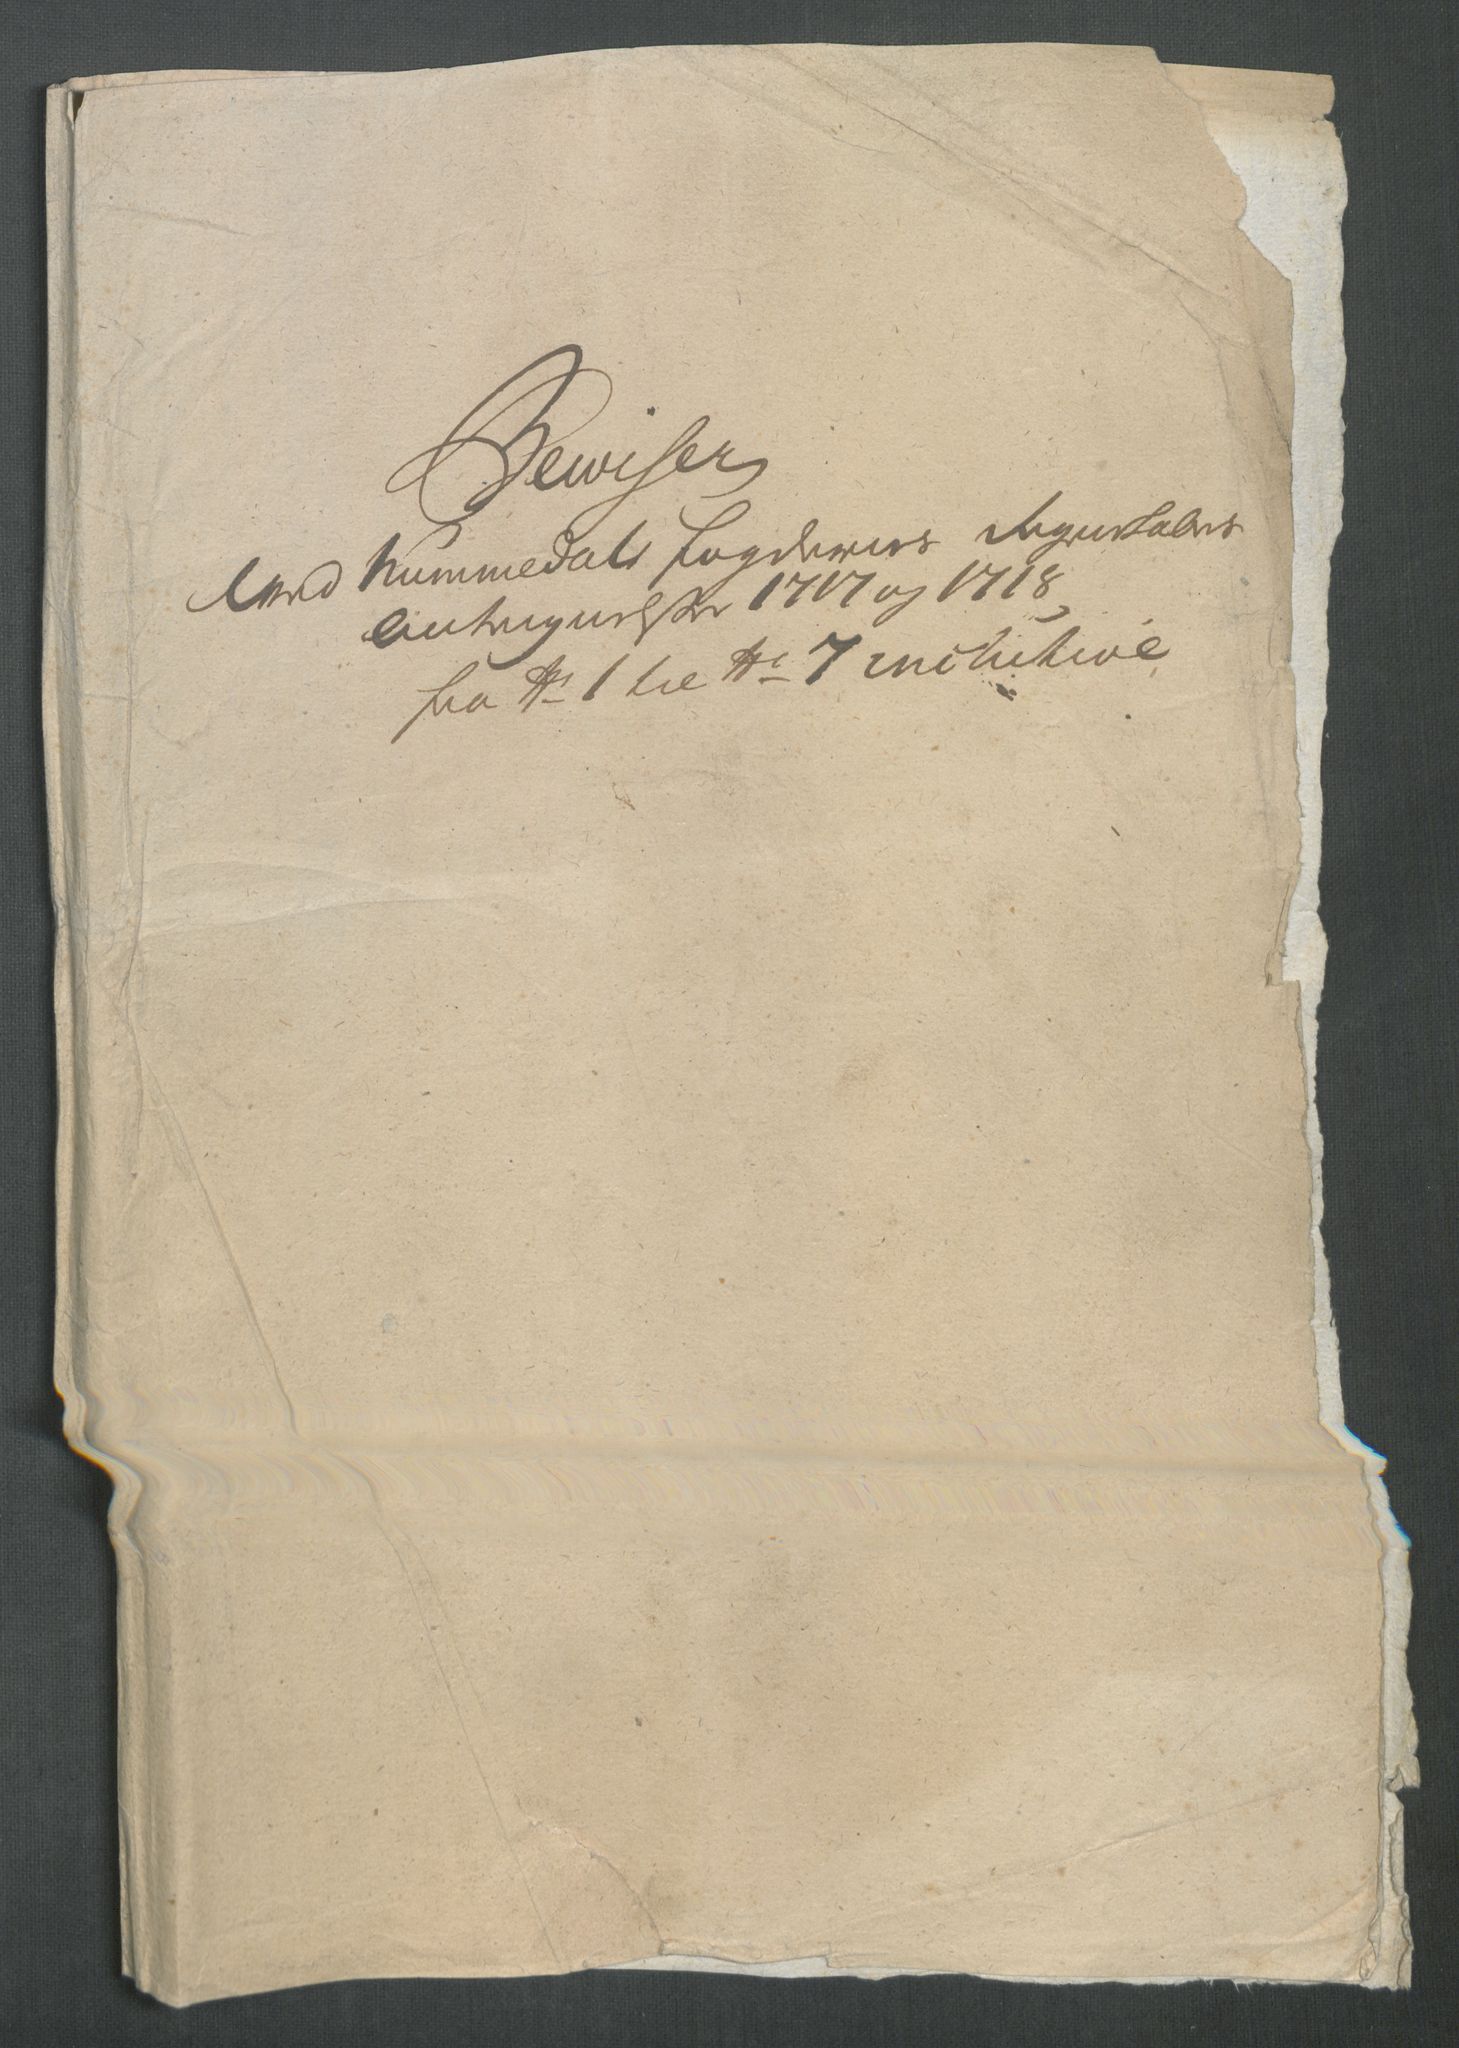 Bewiser
Ved Nummedals fogderies Regenskaber
Antegnelsser 1717 og 1718
fra No 1 til No 7 inclusive